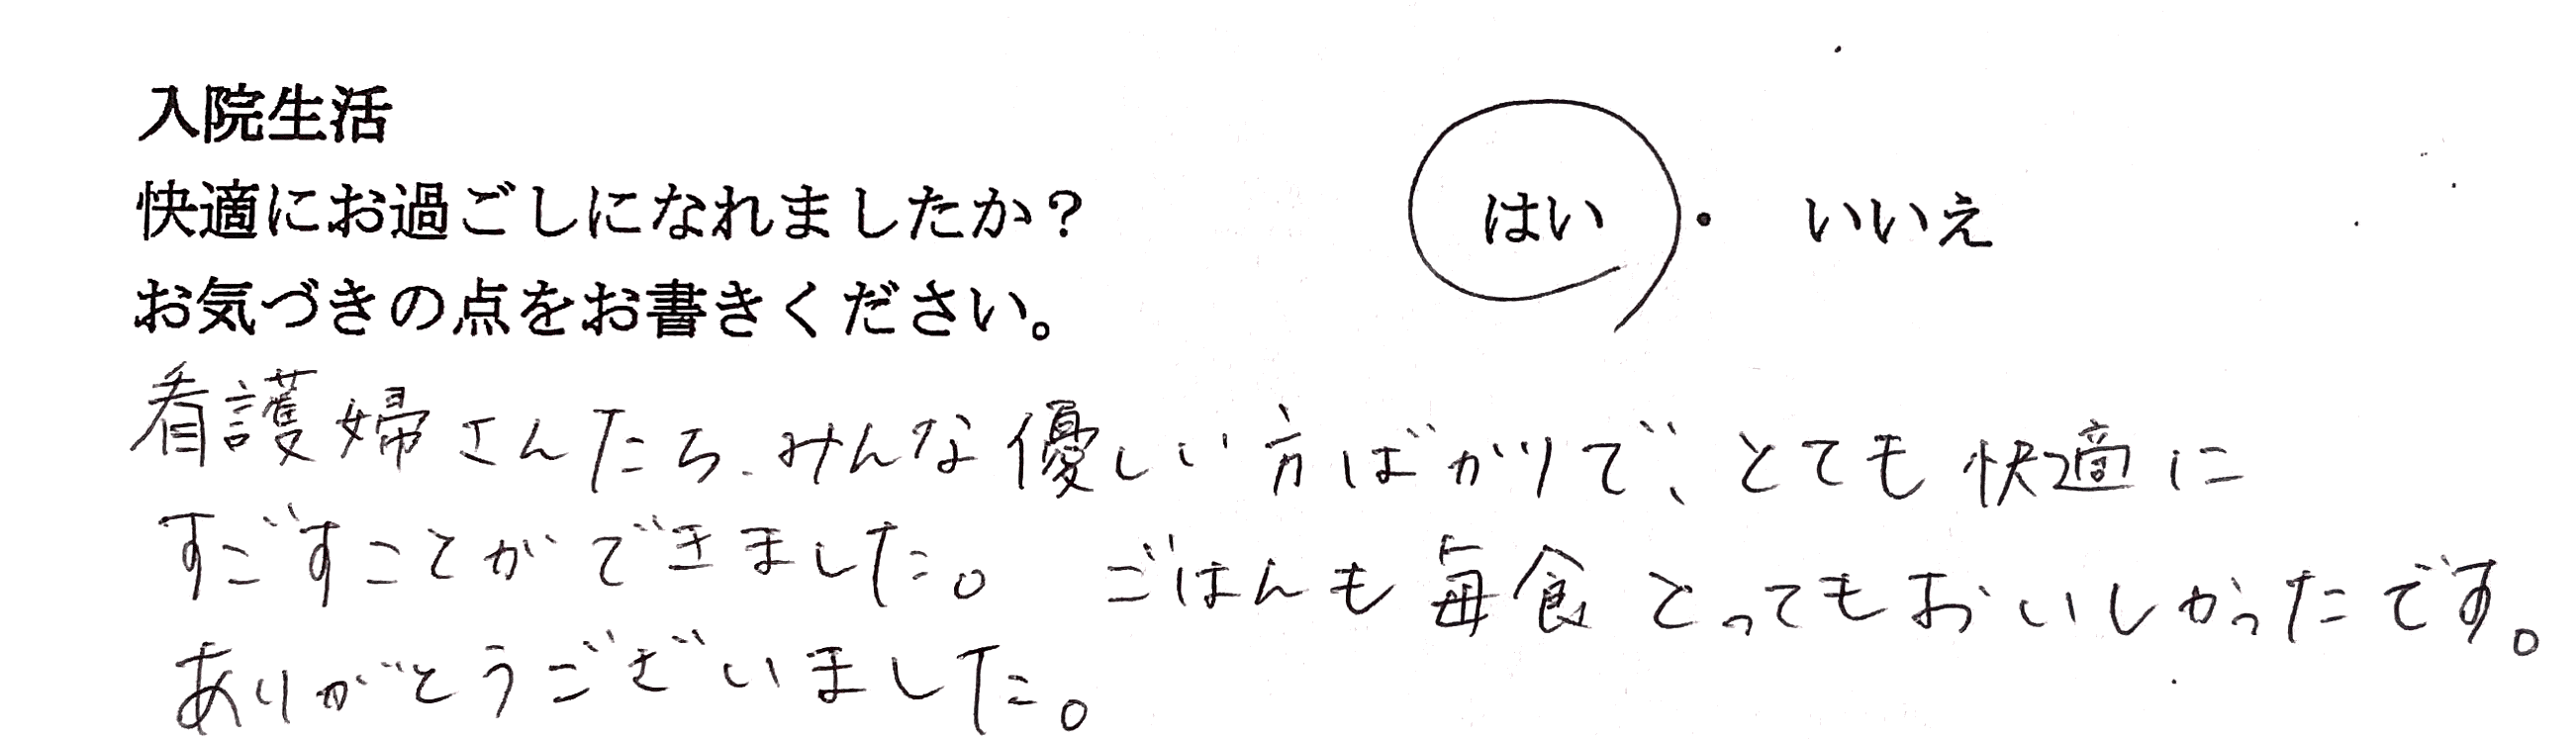 入院生活
快適にお過ごしになれましたか? はい ・ いいえ
お気づきの点をお書きください。
看護婦さんたち、みんな優しい方ばかりで、とても快適に
すごすことができました。 ごはんも毎食とってもおいしかったです。
ありがとうございました。